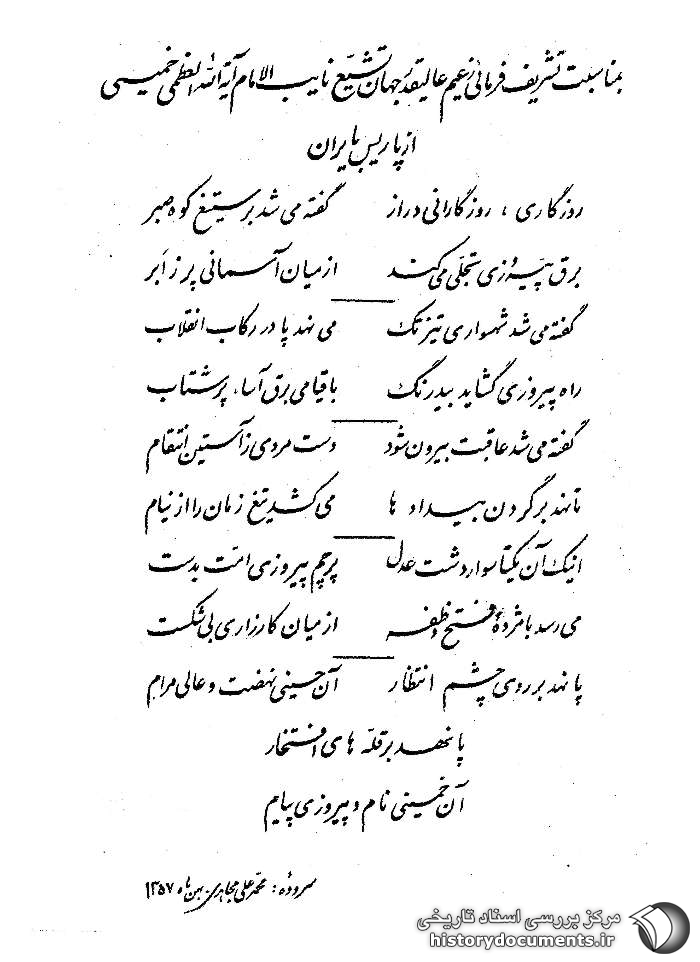 بمناسبت تشریف فرمائی زعیم عالیقدر جهان تشیّع نایب الامام آیة الله العظمی خمینی
از پاریس بایران
روزگاری ، روزگارانی دراز گفته می شد بر ستیغ کوه صبر
برق پیروزی تجلّی می کند از میان آسمانی پر ز ابر
گفته می شد شهسواری تیز تک می نهد پا در رکاب انقلاب
راه پیروزی گشاید بیدرنگ با قیامی برق آسا، پر شتاب
گفته می شد عاقبت بیرون شود دست مردی ز آستین انتقام
تا نهد بر گردن بیدادها می کشد تیغ زمان را از نیام
اینک آن یکتا سوار دشت عدل پرچم پیروزی امّت بدست
می رسد با مژدهٔ فتح و ظفر از میان کارزاری بی شکست
پا نهد بر روی چشم انتظار آن حسینی نهضت و عالی مرام
پا نهد بر قلّه های افتخار
آن خمینی نام و پیروزی پیام
سروده: محمّد علی مجاهدی بهن ماه ۱۳۵۷
مرکز بررسی اسناد تاریخی
historydocuments.ir